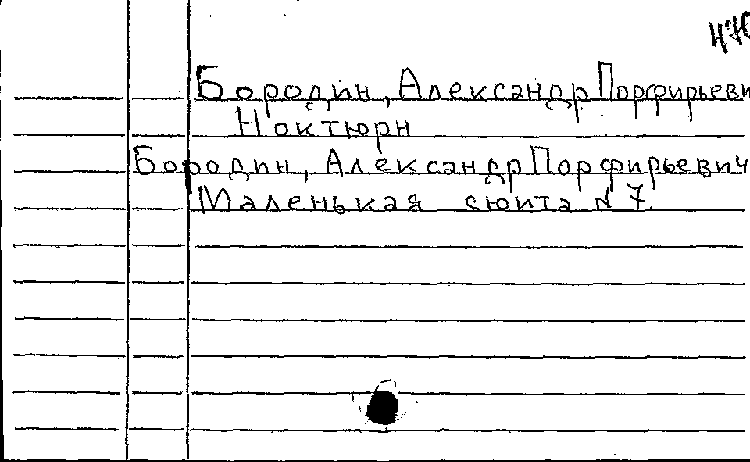 Бородин, Александр Порфирьеви
Ноктюрн
Бородин, Александр Порфирьевич
Маленькая сюита N 7.